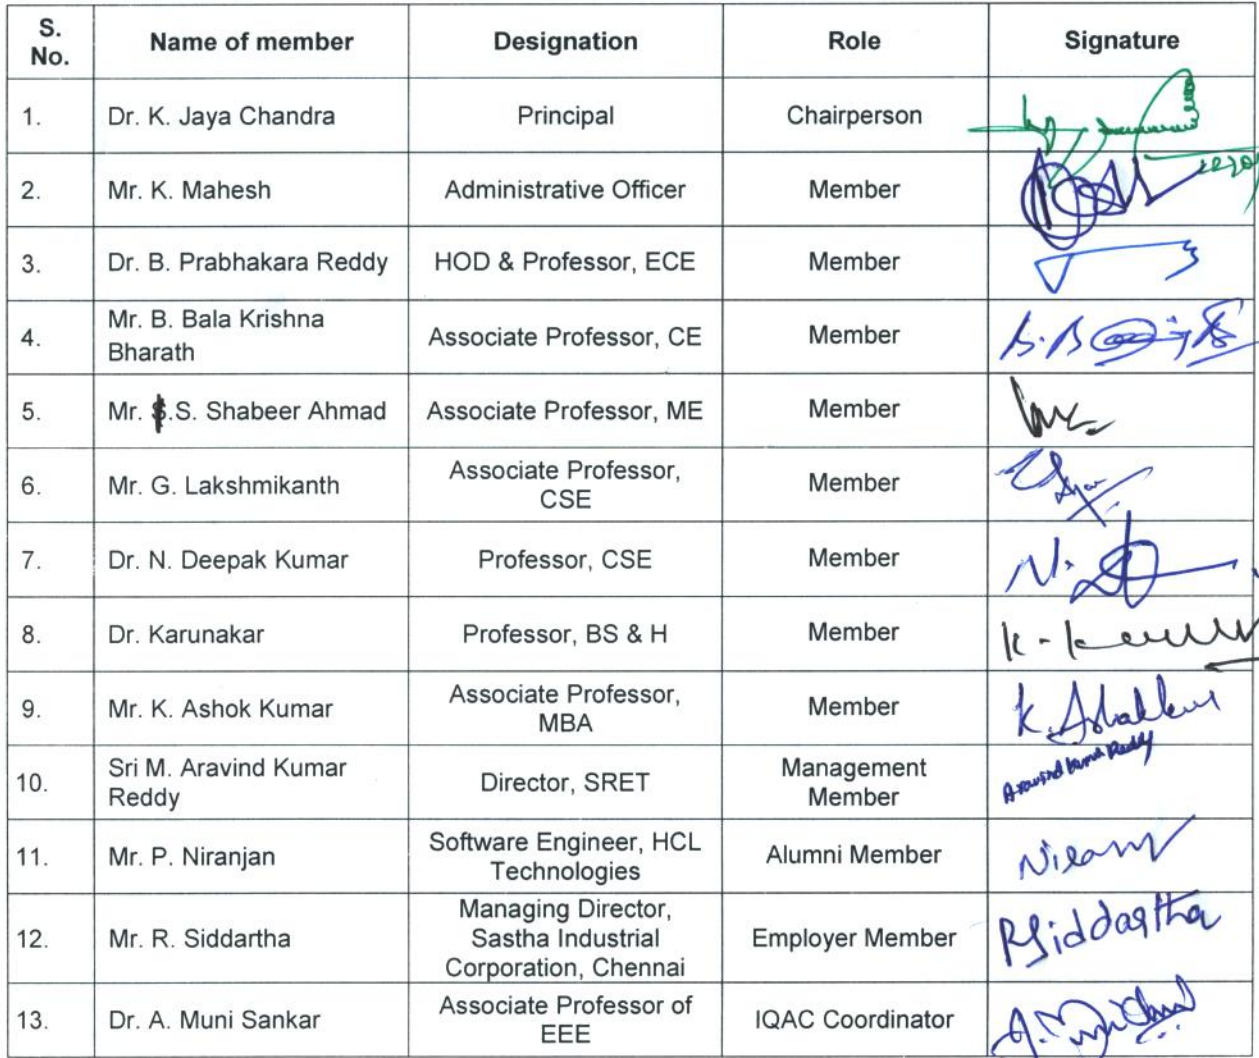 S. No. Name of member Designation Role Signature
1. Dr. K. Jaya Chandra Principal Chairperson
2. Mr. K. Mahesh Administrative Officer Member
3. Dr. B. Prabhakara Reddy HOD & Professor, ECE Member
4. Mr. B. Bala Krishna
Bharath Associate Professor, CE Member
5. Mr. S.S. Shabeer Ahmad Associate Professor, ME Member
6. Mr. G. Lakshmikanth Associate Professor,
CSE Member
7. Dr. N. Deepak Kumar Professor, CSE Member N.
8. Dr. Karunakar Professor, BS & H Member K-
9. Mr. K. Ashok Kumar Associate Professor,
MBA Member K.
10. Sri M. Aravind Kumar
Reddy Director, SRET Management
Member Aravind Kumar Reddy
11. Mr. P. Niranjan Software Engineer, HCL
Technologies Alumni Member
12. Mr. R. Siddartha Managing Director,
Sastha Industrial
Corporation, Chennai Employer Member R Siddartha
13. Dr. A. Muni Sankar Associate Professor of
EEE IQAC Coordinator